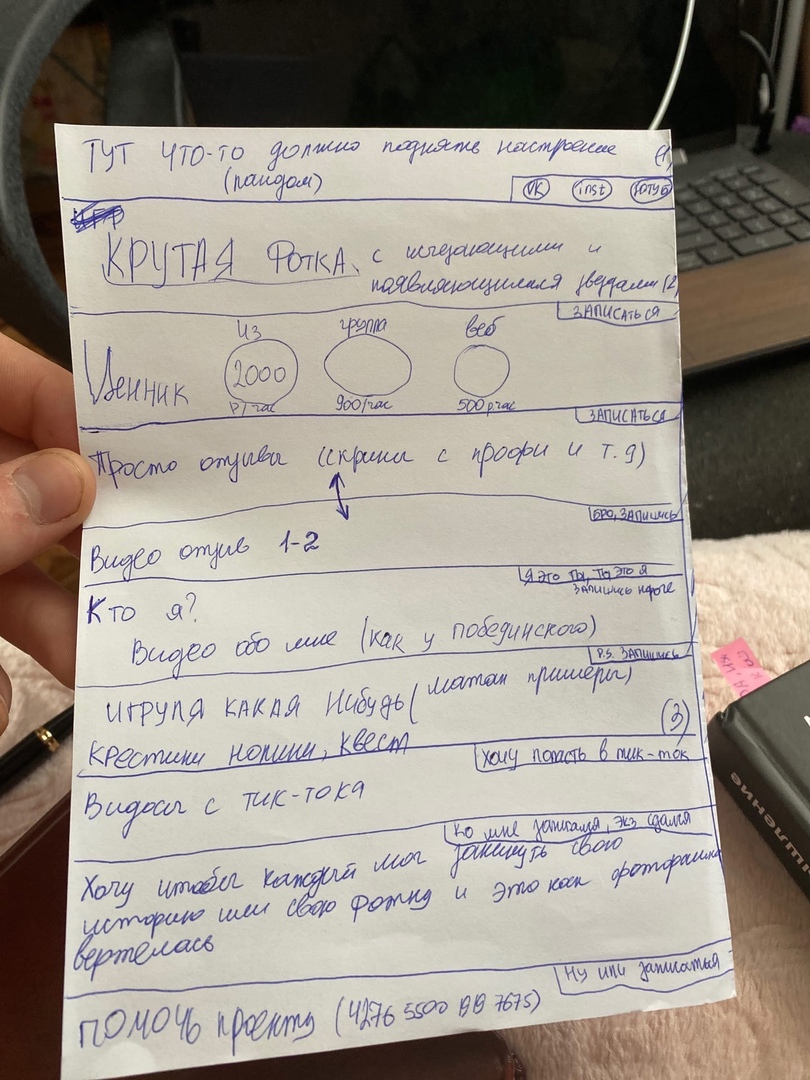 ТУТ ЧТО-ТО должно поднять настроение (1)
(рандом)
VK inst ЮТУБ
КРУТАЯ ФОТКА с исчезающими и
появляющимися звездами (2)
ЗАПИСАТЬСЯ
из группа веб
Ценник 2000
р/час 900/час 500 р час
ЗАПИСАТЬСЯ
Просто отзывы (скрины с профи и т.д)
БРО, ЗАПИШИСЬ
Видео отзыв 1-2
Я ЭТО ТЫ, ТЫ ЭТО Я
Кто я? ЗАПИШИСЬ короче
Видео обо мне (как у побединского)
P.S. ЗАПИШИСЬ
ИГРУЛЯ КАКАЯ Нибудь (матан примеры)
(3)
крестики нолики, квест
Хочу попасть в тик-ток
Видосы с тик-тока
ко мне записался, экз сдался
Хочу чтобы каждый мог закинуть свою
историю или свою фотку и это как фоторамка
вертелась
Ну или записаться
ПОМОЧЬ проекту (4276 5500 7675)